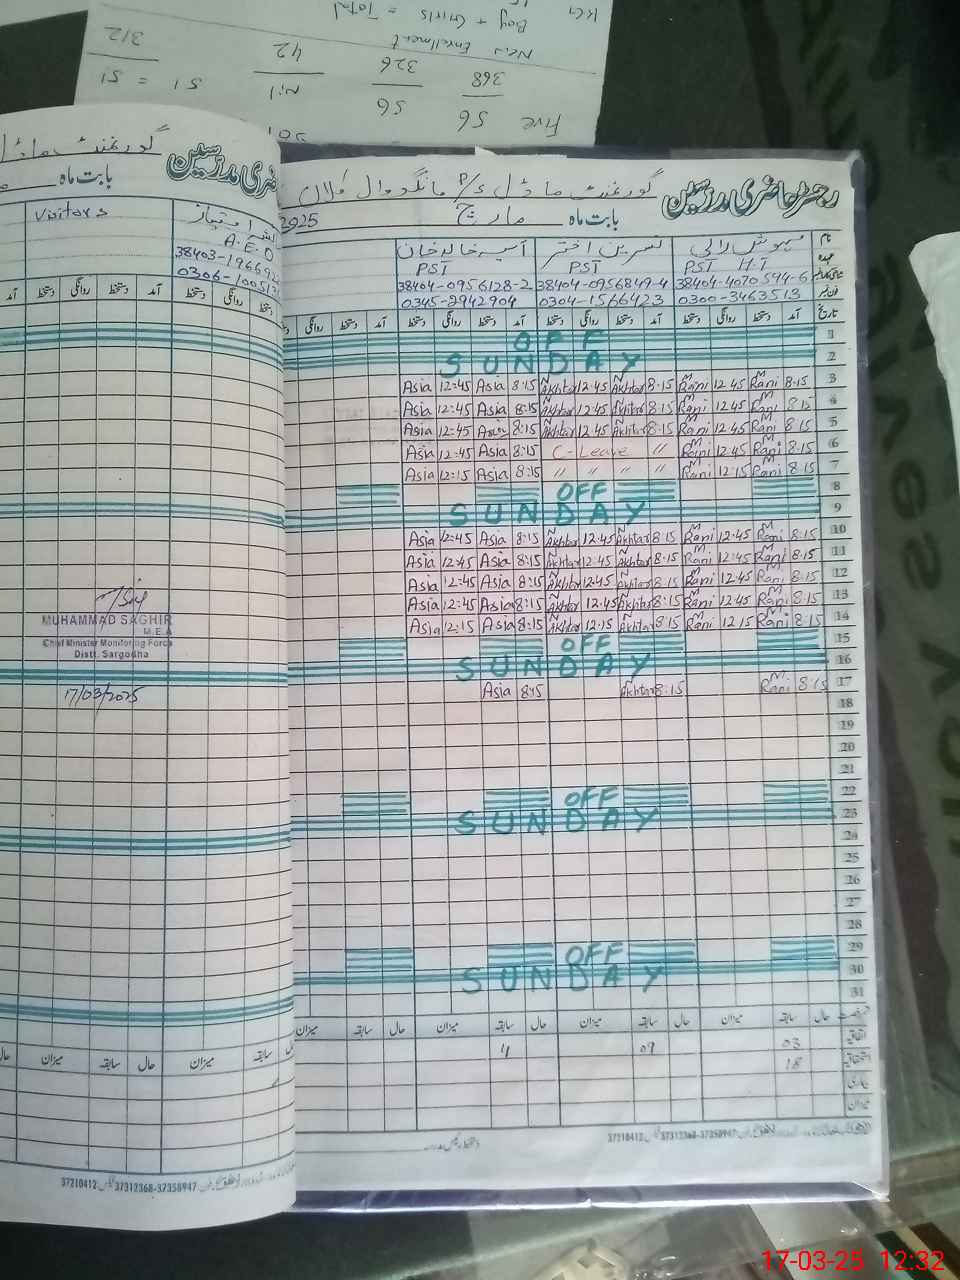 Boy + Girls = Total
New Enrollment
312
42
326
368
51 = 51
Nil
56
56
Five
رجسٹر حاضری مدرسین
گورنمنٹ ماڈل P/S مانگووال کلاں
بابت ماہ مارچ 2025
نام مہوش رانی نسرین اختر آسیہ خالد خان
عہدہ PST H.T PST PST
38404-4070594-6 38404-0956849-4 38404-0956128-2
0300-3463513 0304-1566423 0345-2942904
تاریخ آمد دستخط روانگی دستخط آمد دستخط روانگی دستخط آمد دستخط روانگی دستخط آمد دستخط روانگی
1 OFF
2 SUNDAY
3 Asia 12:45 Asia 8:15 N Akhtar 12.45 N Akhtar 8.15 M Rani 12 45 M Rani 8.15
4 Asia 12:45 Asia 8:15 N Akhtar 12.45 N Akhtar 8.15 M Rani 12.45 M Rani 8.15
5 Asia 12:45 Asia 8:15 N Akhtar 12.45 N Akhtar 8.15 M Rani 12.45 M Rani 8.15
6 Asia 12:45 Asia 8:15 C-Leave 〃 M Rani 12.45 M Rani 8.15
7 Asia 12:15 Asia 8:15 〃 〃 〃 〃 M Rani 12.15 M Rani 8.15
8 OFF
9 SUNDAY
10 Asia 12:45 Asia 8:15 N Akhtar 12.45 N Akhtar 8.15 M Rani 12.45 M Rani 8.15
11 Asia 12:45 Asia 8:15 N Akhtar 12.45 N Akhtar 8.15 M Rani 12.45 M Rani 8.15
12 Asia 12:45 Asia 8:15 N Akhtar 12.45 N Akhtar 8.15 M Rani 12.45 M Rani 8.15
13 Asia 12:45 Asia 8:15 N Akhtar 12.45 N Akhtar 8.15 M Rani 12.45 M Rani 8.15
14 Asia 12:15 Asia 8:15 N Akhtar 12.15 N Akhtar 8.15 M Rani 12 15 M Rani 8.15
15 OFF
16 SUNDAY
17 Asia 8:15 N Akhtar 8.15 M Rani 8.15
18
19
20
21
22 OFF
23 SUNDAY
24
25
26
27
28
29 OFF
30 SUNDAY
31
حال سابقہ میزان حال سابقہ میزان حال سابقہ میزان حال سابقہ میزان
اتفاقیہ 03 09 11
18
بیماری
میزان
37312368-37358947 37210412
بابت ماہ
Visitors
A.E.O
38403-196692
0306-100512
MUHAMMAD SAGHIR
M.E.A
Chief Minister Monitoring Force
Distt. Sargodha
17/03/2025
حال سابقہ میزان حال سابقہ میزان
37312368-37358947 37210412
17-03-25 12:32